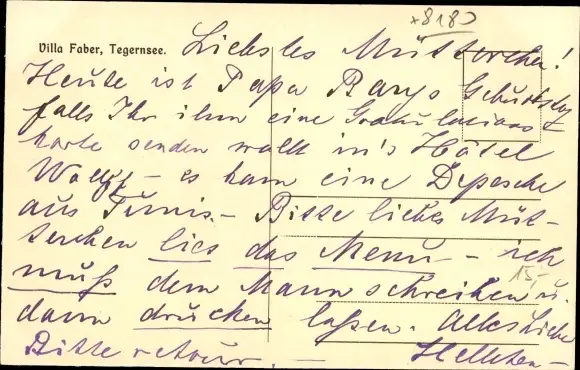 x8180
Villa Faber, Tegernsee.
Liebstes Mütterchen!
Heute ist Papa Barys Geburtstag
falls Ihr ihm eine Gratulations
karte senden wollt in's Hôtel
Wolff – es kam eine Depesche
aus Tunis – Bitte liebes Müt-
terchen lies das Menu – ich
muß dem Mann schreiben u.
15,-
dann drucken laßen. Alles Liebe
Bitte retour. –